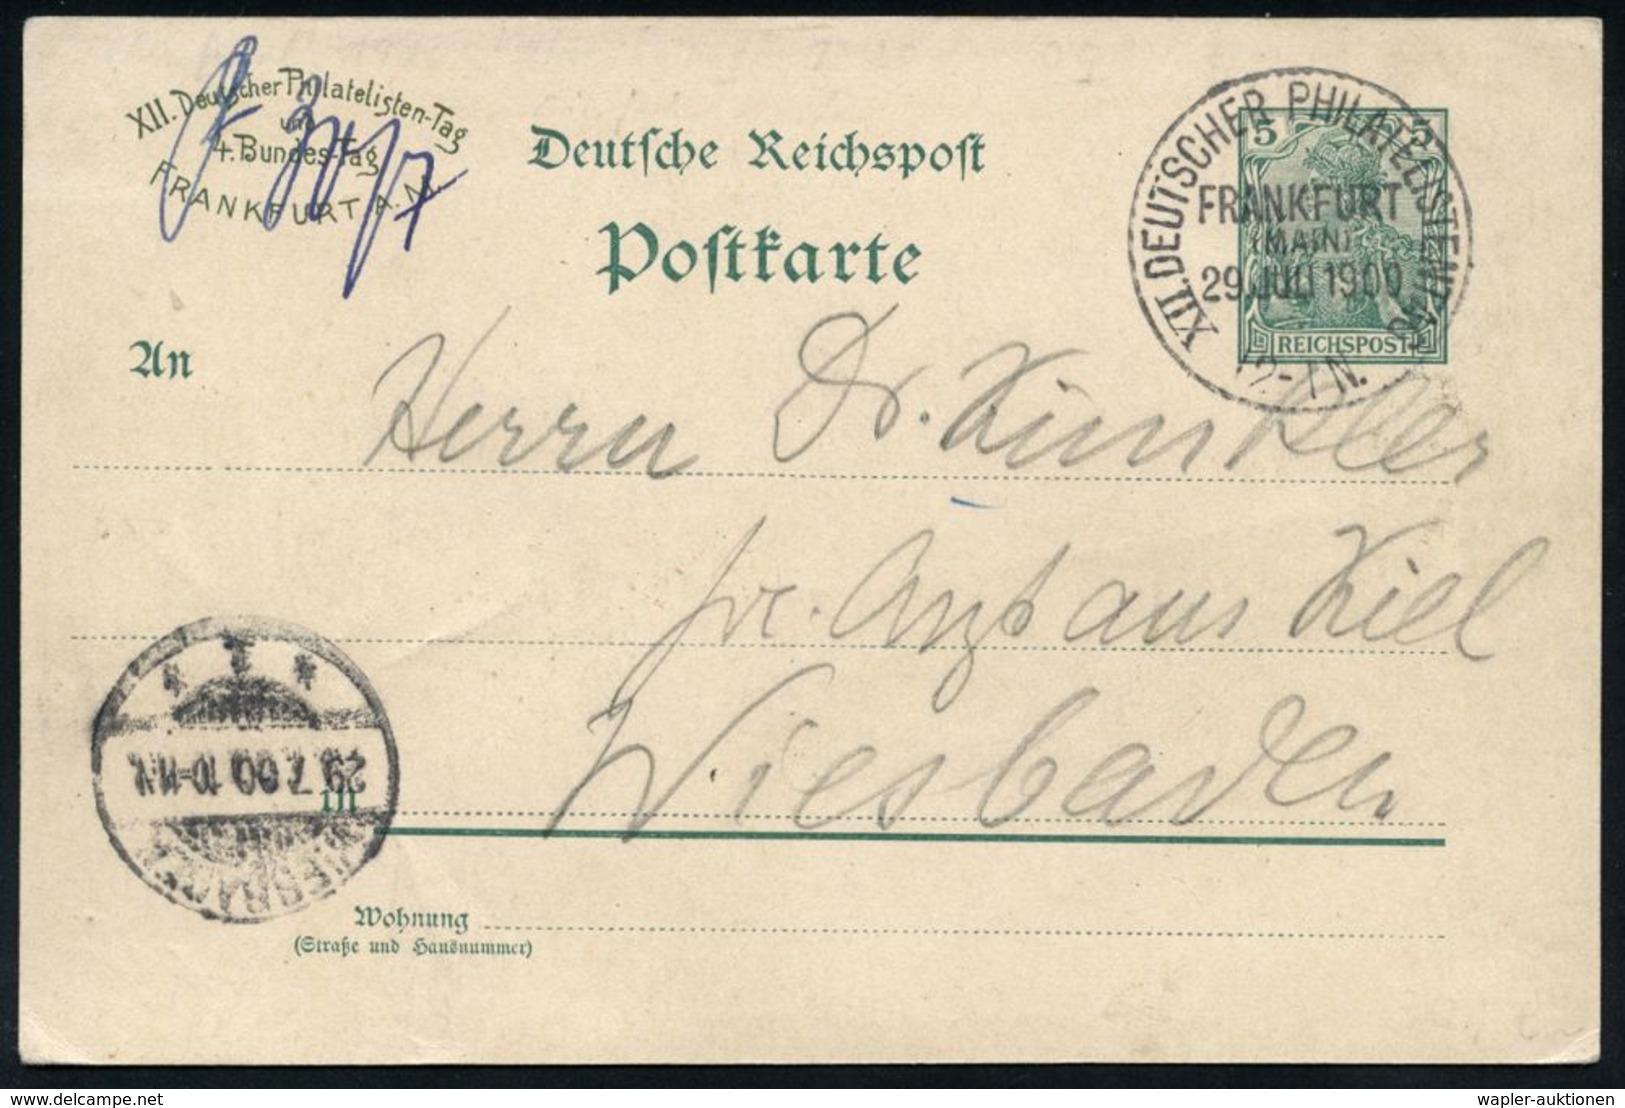 XII. Deutscher Philatelisten-Tag
und
4. Bundes-Tag
FRANKFURT A. M.
Deutsche Reichspost
Postkarte
5 5
REICHSPOST
XII. DEUTSCHER PHILATELISTENTAG
FRANKFURT
(MAIN)
29. JULI 1900
12-1 N.
An
Herrn Dr. Kunkler
pr. Arzt aus Kiel
Wiesbaden
in
* I *
29.7.00. 10-11 V.
Wohnung
(Straße und Hausnummer)
www.delcampe.net
wapler-auktionen